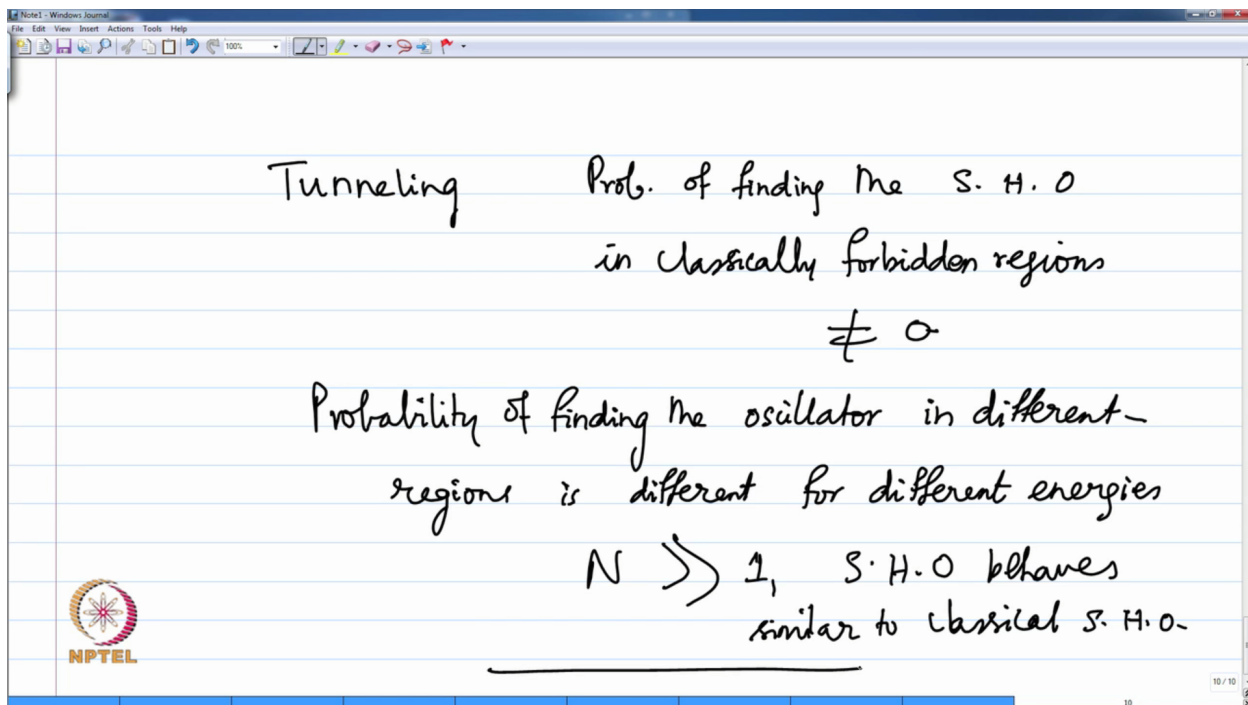 Note1 - Windows Journal
File Edit View Insert Actions Tools Help
100%
Tunneling Prob. of finding the S. H. O
in classically forbidden regions
≠ 0
Probability of finding the oscillator in different
regions is different for different energies
N >> 1, S. H. O behaves
similar to classical S. H. O.
NPTEL
10 / 10
10